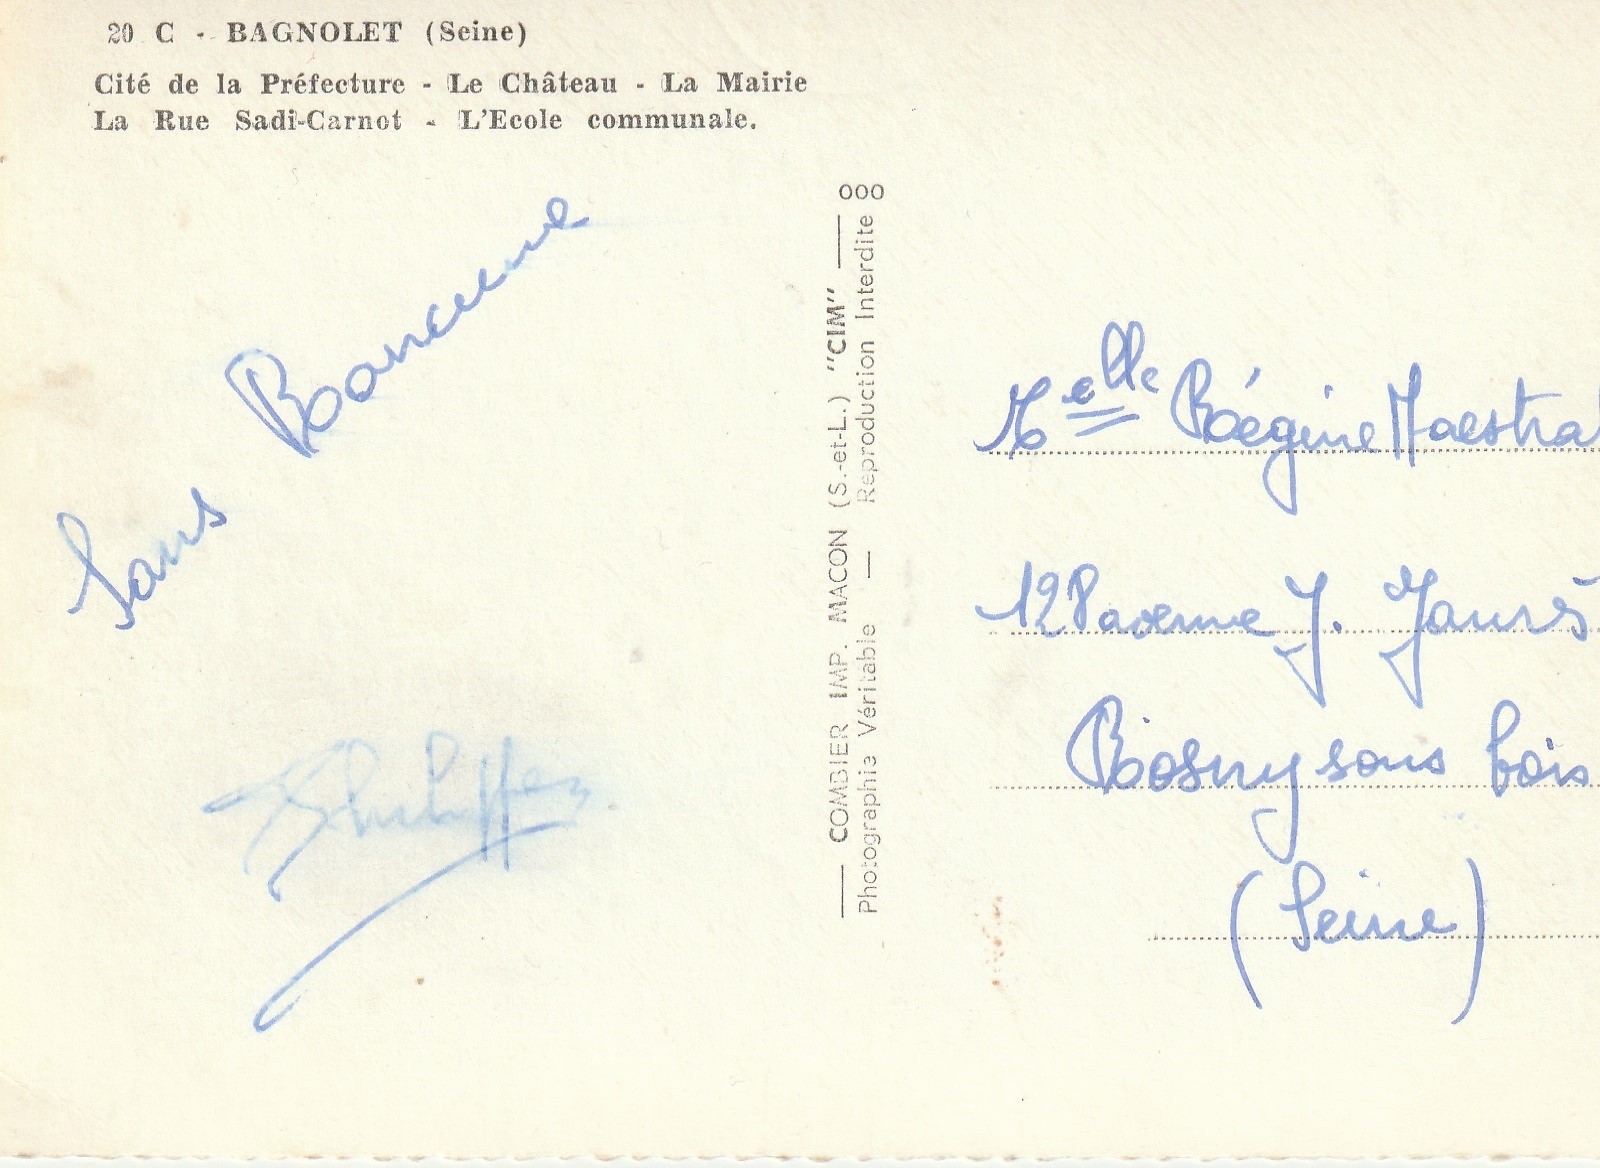 20 C - BAGNOLET (Seine)
Cité de la Préfecture - Le Château - La Mairie
La Rue Sadi-Carnot - L'Ecole communale.
Sans Rancune
COMBIER IMP. MACON (S.-et-L.) "CIM"
Photographie Véritable — Reproduction Interdite
000
Melle Régine Maestra
128 avenue J. Jaurès
Rosny sous bois
(Seine)